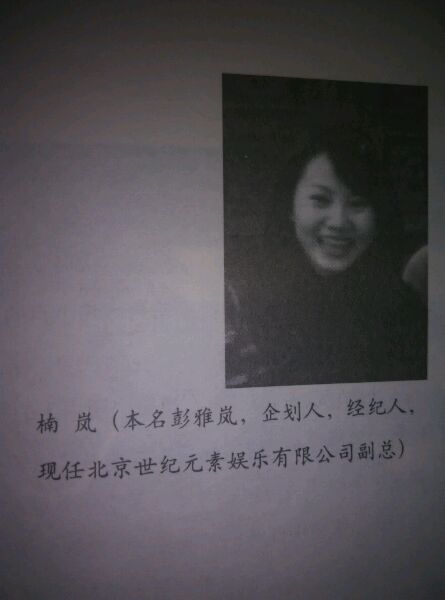 楠 岚（本名彭雅岚，企划人，经纪人，
现任北京世纪元素娱乐有限公司副总）